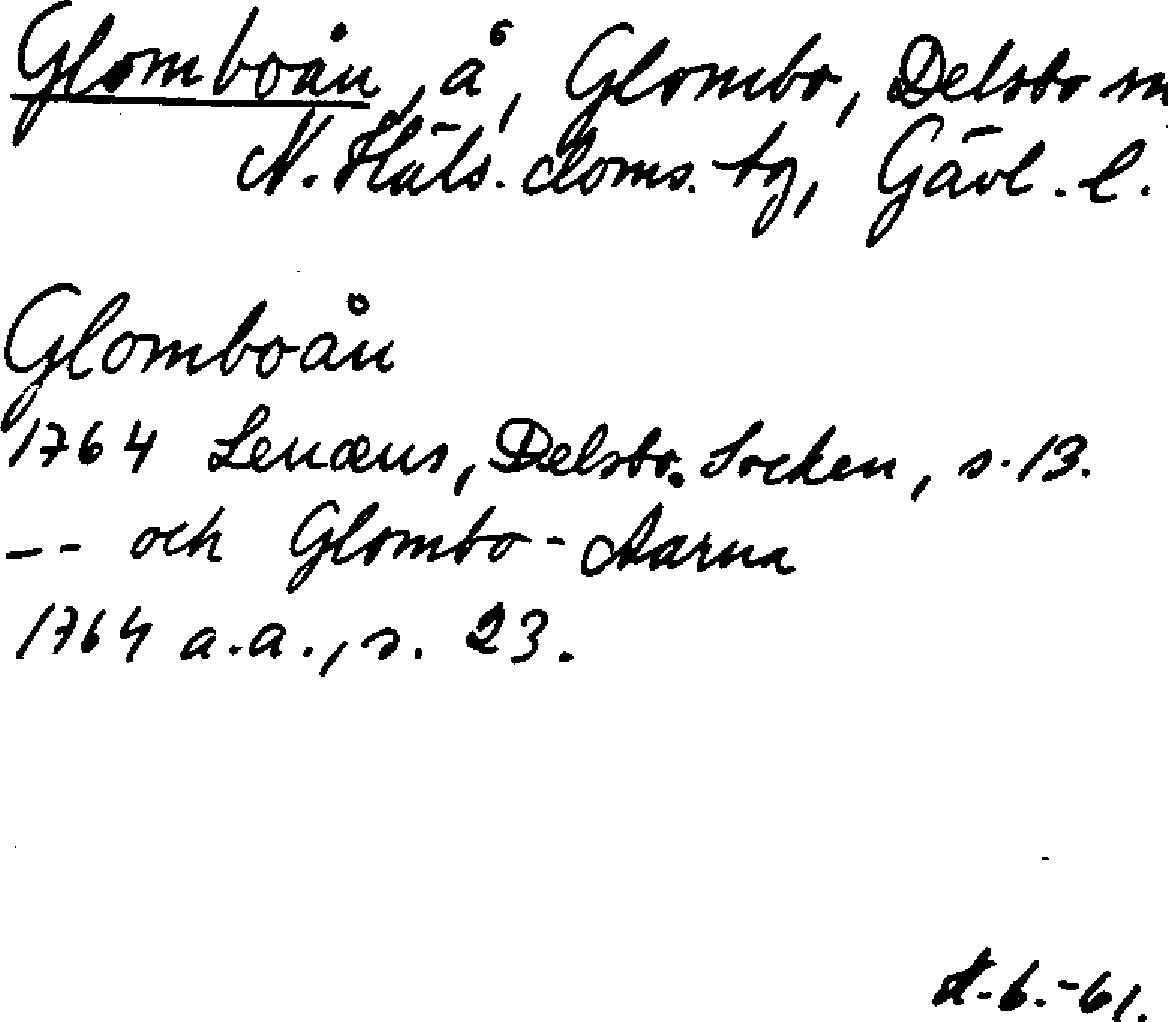 Glomboån, å, Glombo, Delsbo sn
N. Häls. doms. tg, Gävl. l.
Glomboån
1764 Lenæus, Delsbo. Socken, s. 13.
-- och Glombo-Aarna
1764 a.a., s. 23.
A.B.-61.